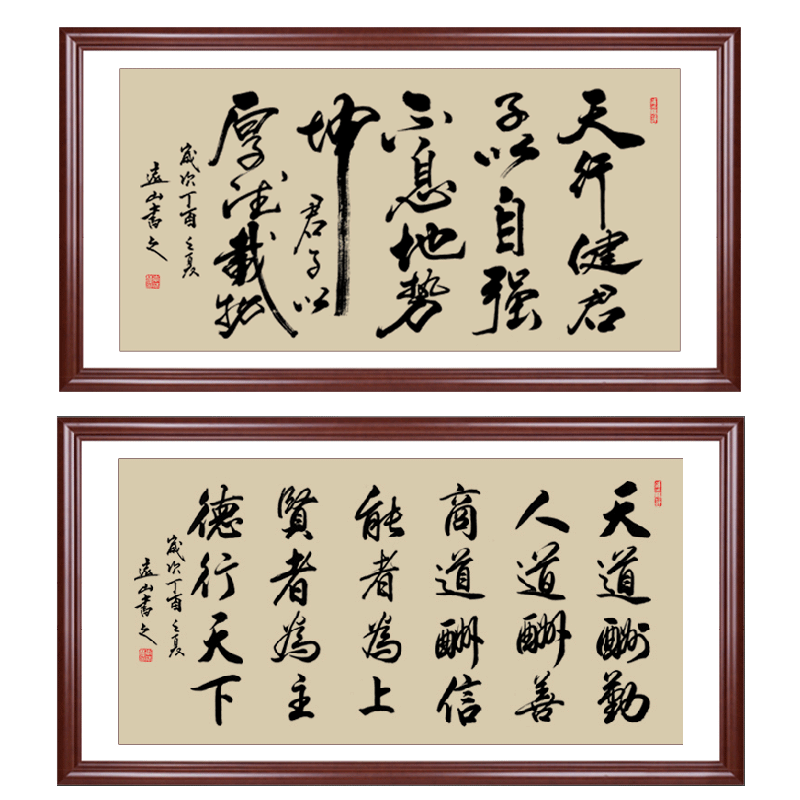 天行健君
子以自强
不息地势
坤君子以
厚德载物
歲次丁酉之夏
遠山書之
天道酬勤
人道酬善
商道酬信
能者為上
賢者為主
德行天下
歲次丁酉之夏
遠山書之